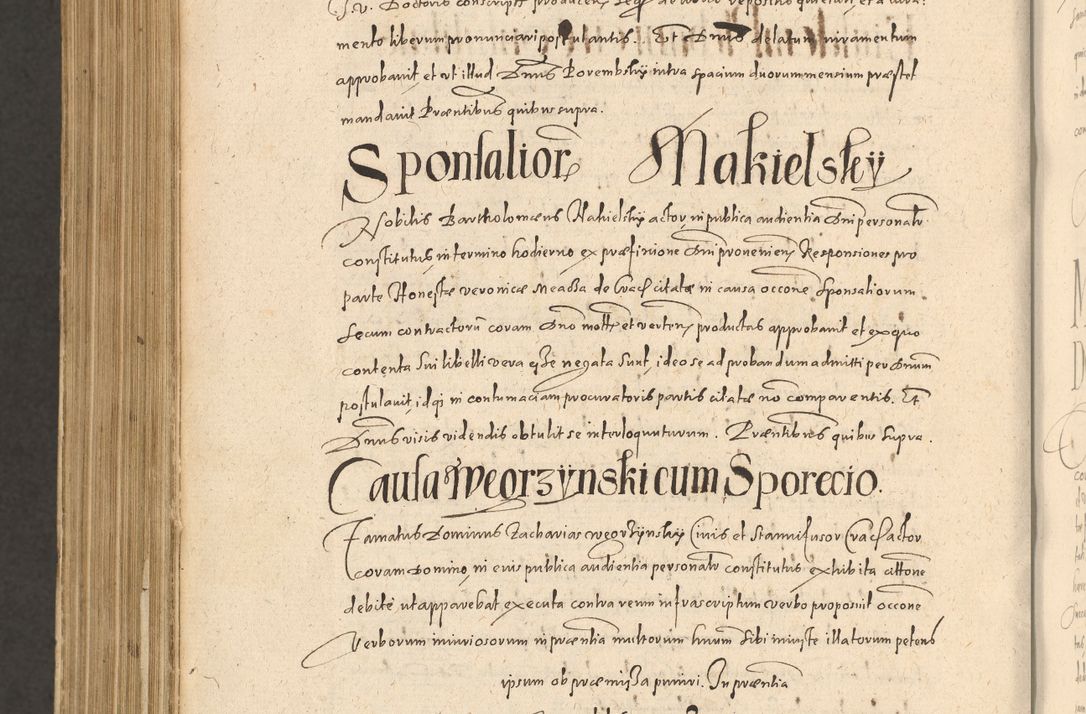 J. V. Doctoris conscript producen,
mento liberum pronunciari postulantis. Et Dnus delatum iuramentum
approbavit et ut illud Dnus Borembsky intra spacium duorum mensium præstet
mandavit Præntibus quibus supra.
Sponsalior Makielskÿ
Nobilis Bartholomæus Nakielsky actor in publica audientia Dni personalr
constitutus in termino hodierno ex præfinione Dni provenien, Responsiones pro
parte Honestæ Veronicæ de Crac citatæ in causa occone Sponsaliorum
secum contractorū coram Dno motæ et verten, productas approbavit et ex quo
contenta sui libelli vera esse negata sunt, ideo se ad probandum admitti per Dnum
postulavit, idq in contumaciam procuratoris partis citatæ nō comparentis. Et
Dnus visis videndis obtulit se interloquuturum. Præntibus quibus supra.
Causa Węorzÿnski cum Sporecio.
Famatus Dominus Zacharias Węorzÿnsky Civis et Stannifusor Crac actor
coram Domino, in eius publica audientia personalr constitutus exhibita cittone
debite ut apparebat executa contra reum infrascriptum verbo proposuit occone
Verborum iniuriosorum in præntia multorum huīum sibi iniuste illatorum petens
ipsum ob præmissa puniri. In præntia